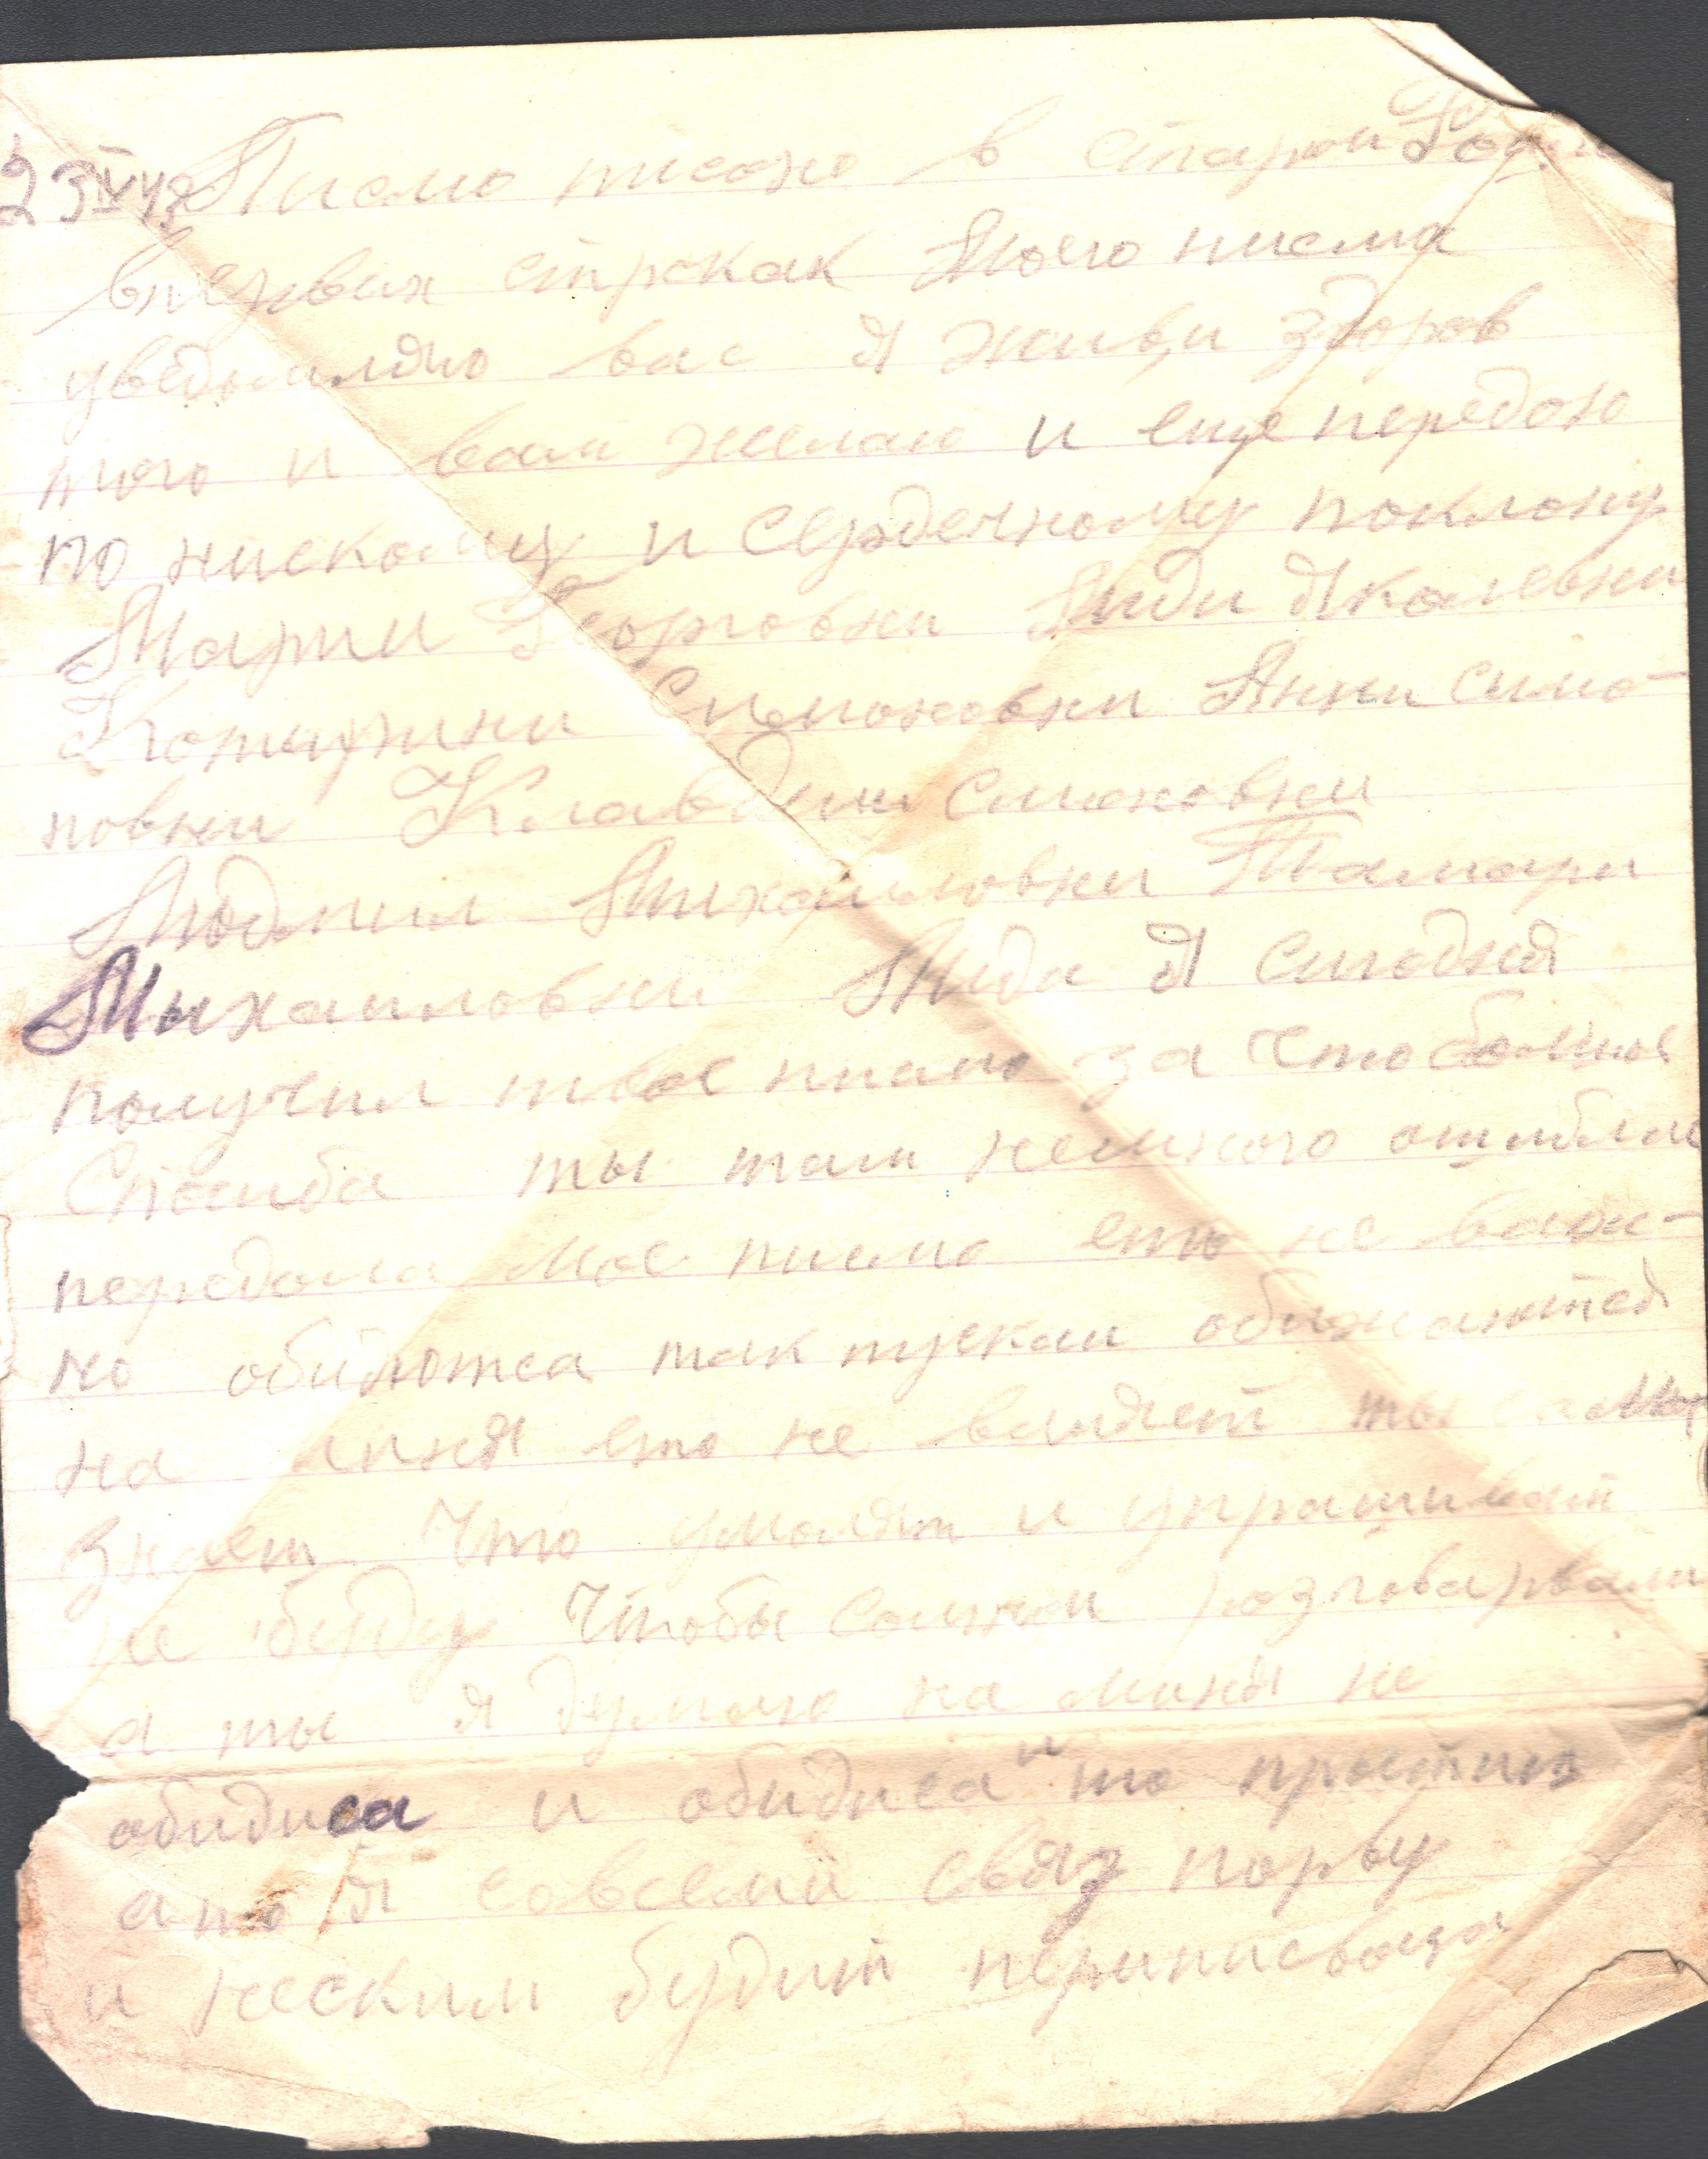 23 IV 43 Писмо писано в старои
вперввих стрскак Моего писма
уведомляю вас Я жив,и здоров
того и вам желаю и еще передою
по нискому и сердечному поклону
Марии Георговни Лиди Якалевни
Симоновни Анни симо-
новни Клавдии симоновни
Людмил Михаиловни Тамари
Михаиловни Лида Я сигодня
получил твое писмо за что болшое
Спасиба ты там немного ошиблас
передала мое писмо ето не важ-
но обидютса так пускаи обижаютса
на миня ето не влияет ты сама
знаеш Что умолят и упрашиват
не буду Чтобы сомнои розговарвали
а ты я думаю на миня не
обидиса и обидиса и то простиш
а то Я совсеми связ порву
и нескким будит перипсиваца